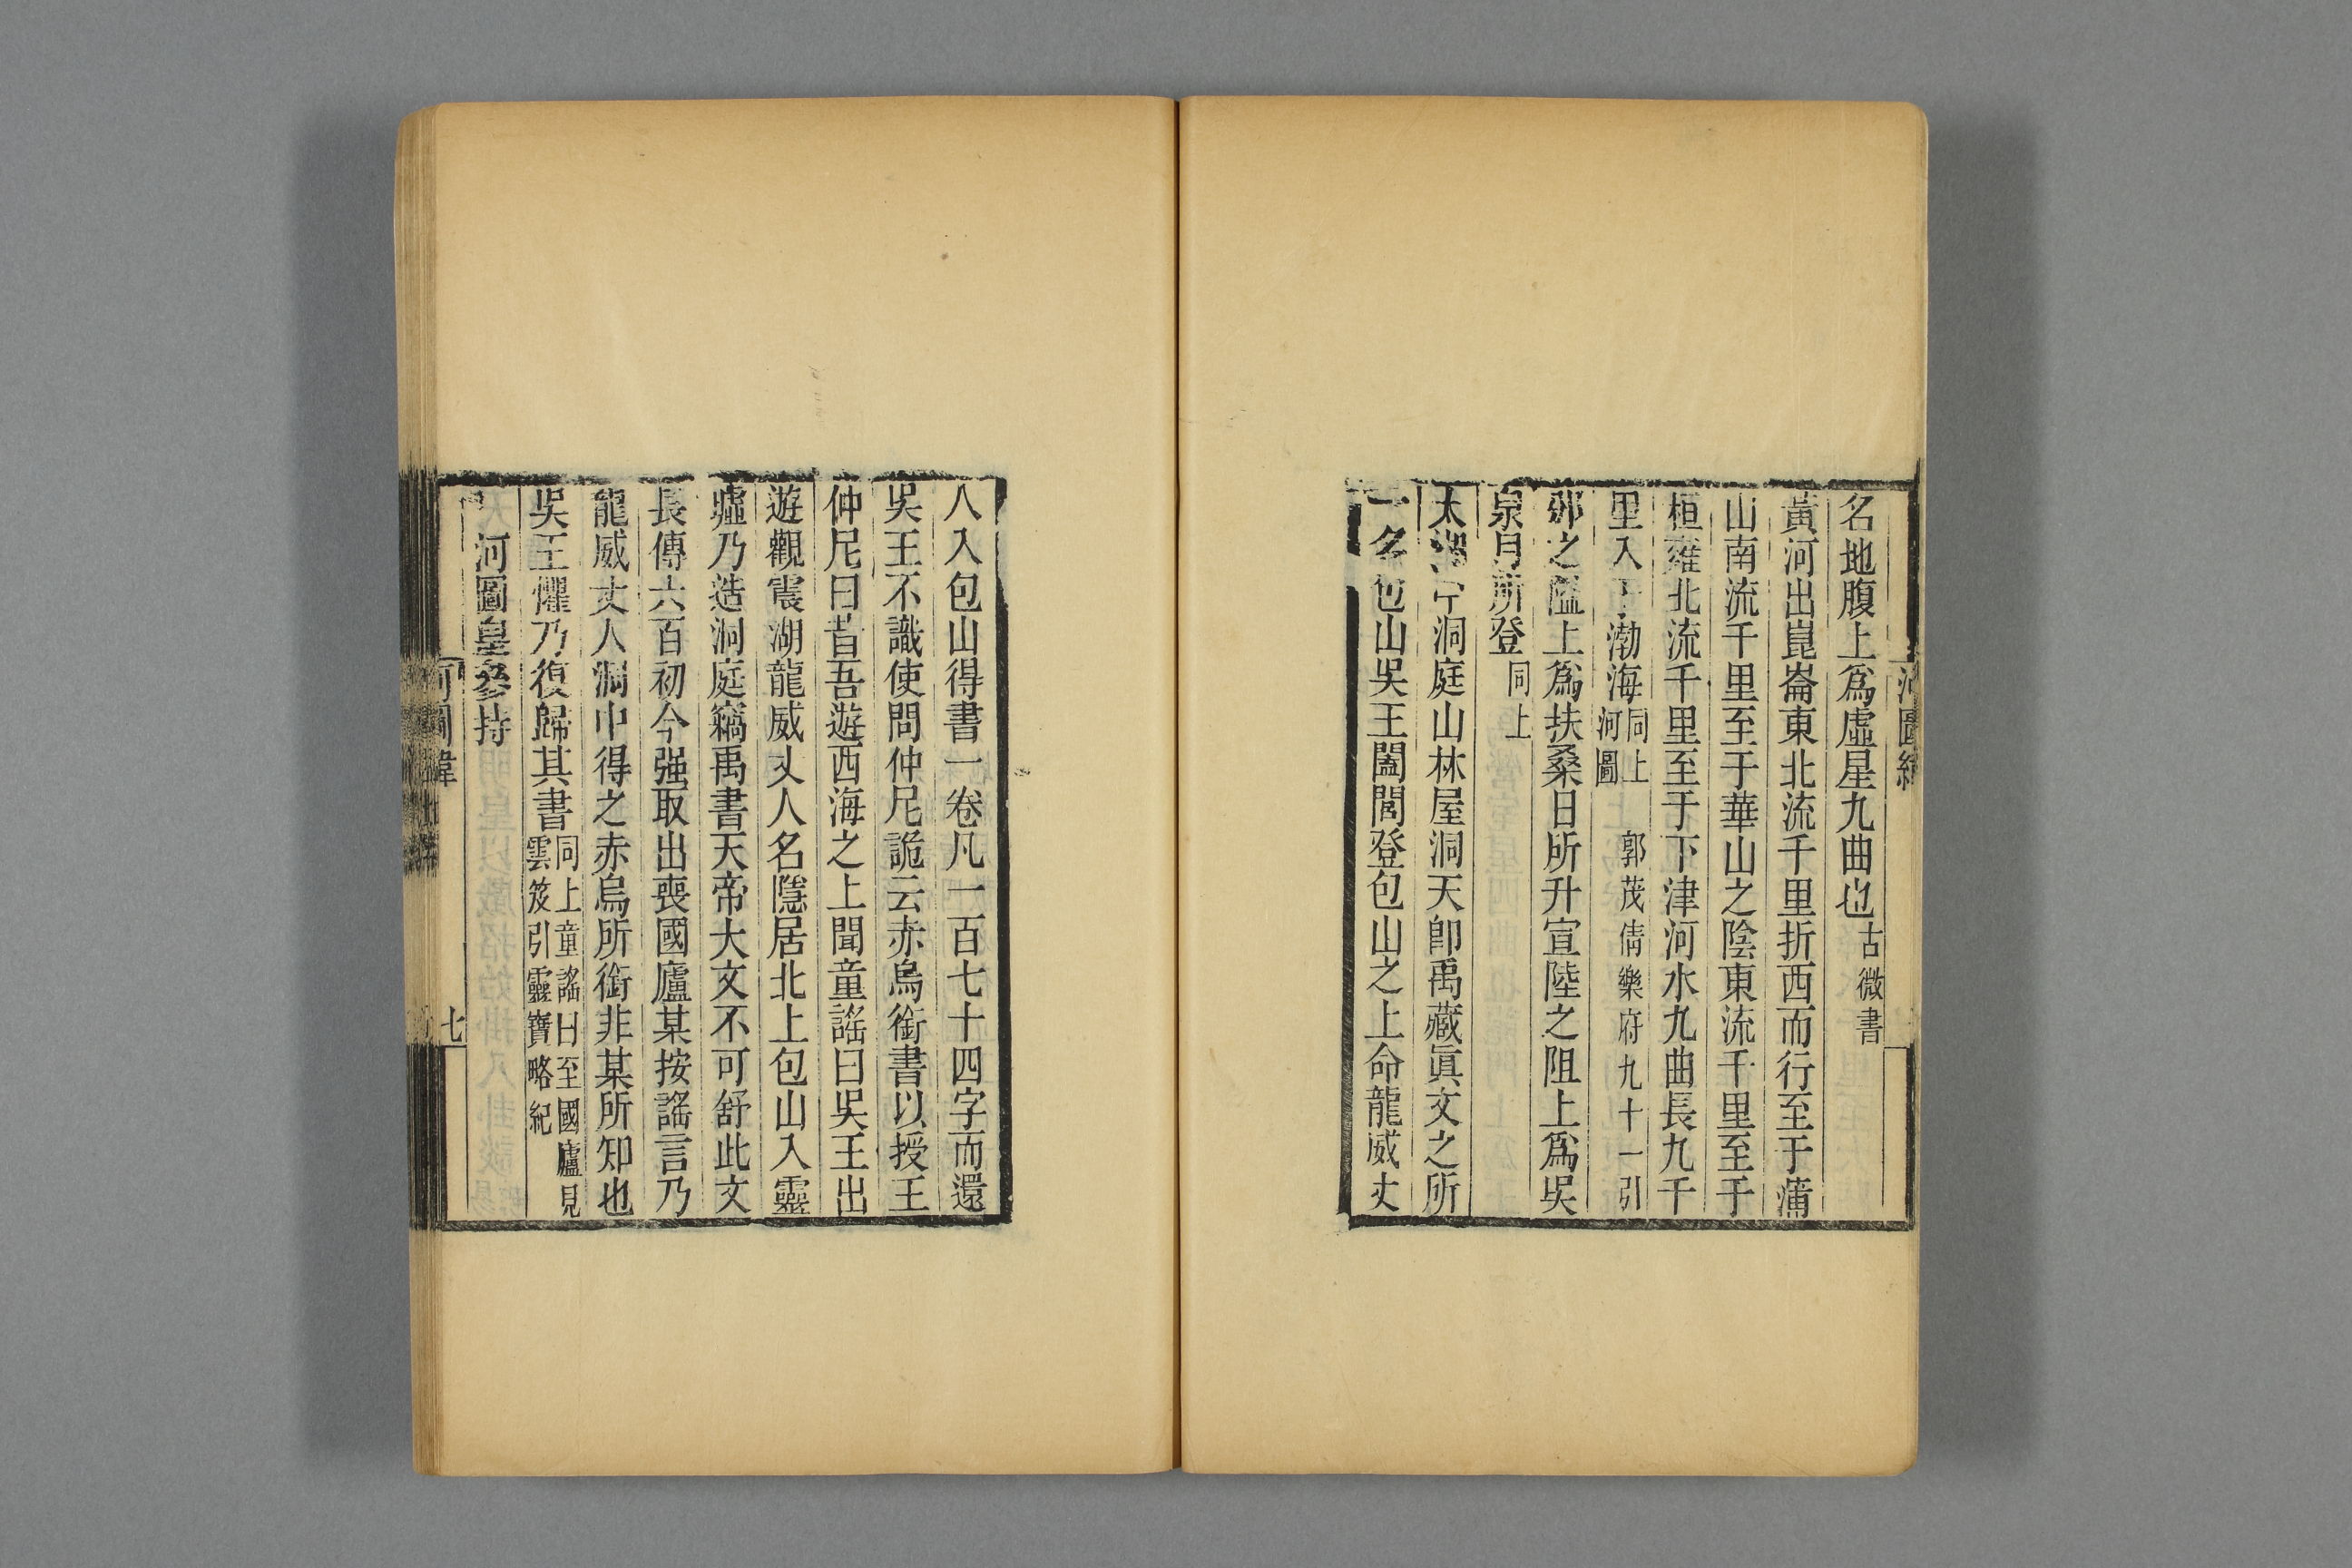 河圖緯
名地腹上爲虛星九曲也古微書
黃河出崑崙東北流千里折西而行至于蒲
山南流千里至于華山之陰東流千里至于
桓雍北流千里至于下津河水九曲長九千
里入于渤海同上河圖 郭茂倩樂府九十一引
之隘上爲扶桑日所升宣陸之阻上爲吳
泉月所登同上
太湖中洞庭山林屋洞天卽禹藏眞文之所
一名包山吳王闔閭登包山之上命龍威丈
人入包山得書一卷凡一百七十四字而還
吳王不識使問仲尼詭云赤烏銜書以授王
仲尼曰昔吾遊西海之上聞童謠曰吳王出
遊觀震湖龍威丈人名隱居北上包山入靈
墟乃造洞庭竊禹書天帝大文不可舒此文
長傳六百初今强取出喪國廬某按謠言乃
龍威丈人洞中得之赤烏所銜非某所知也
吳王懼乃復歸其書同上童謠曰至國廬見雲笈引靈寶略紀
河圖皇參持
河圖緯
七